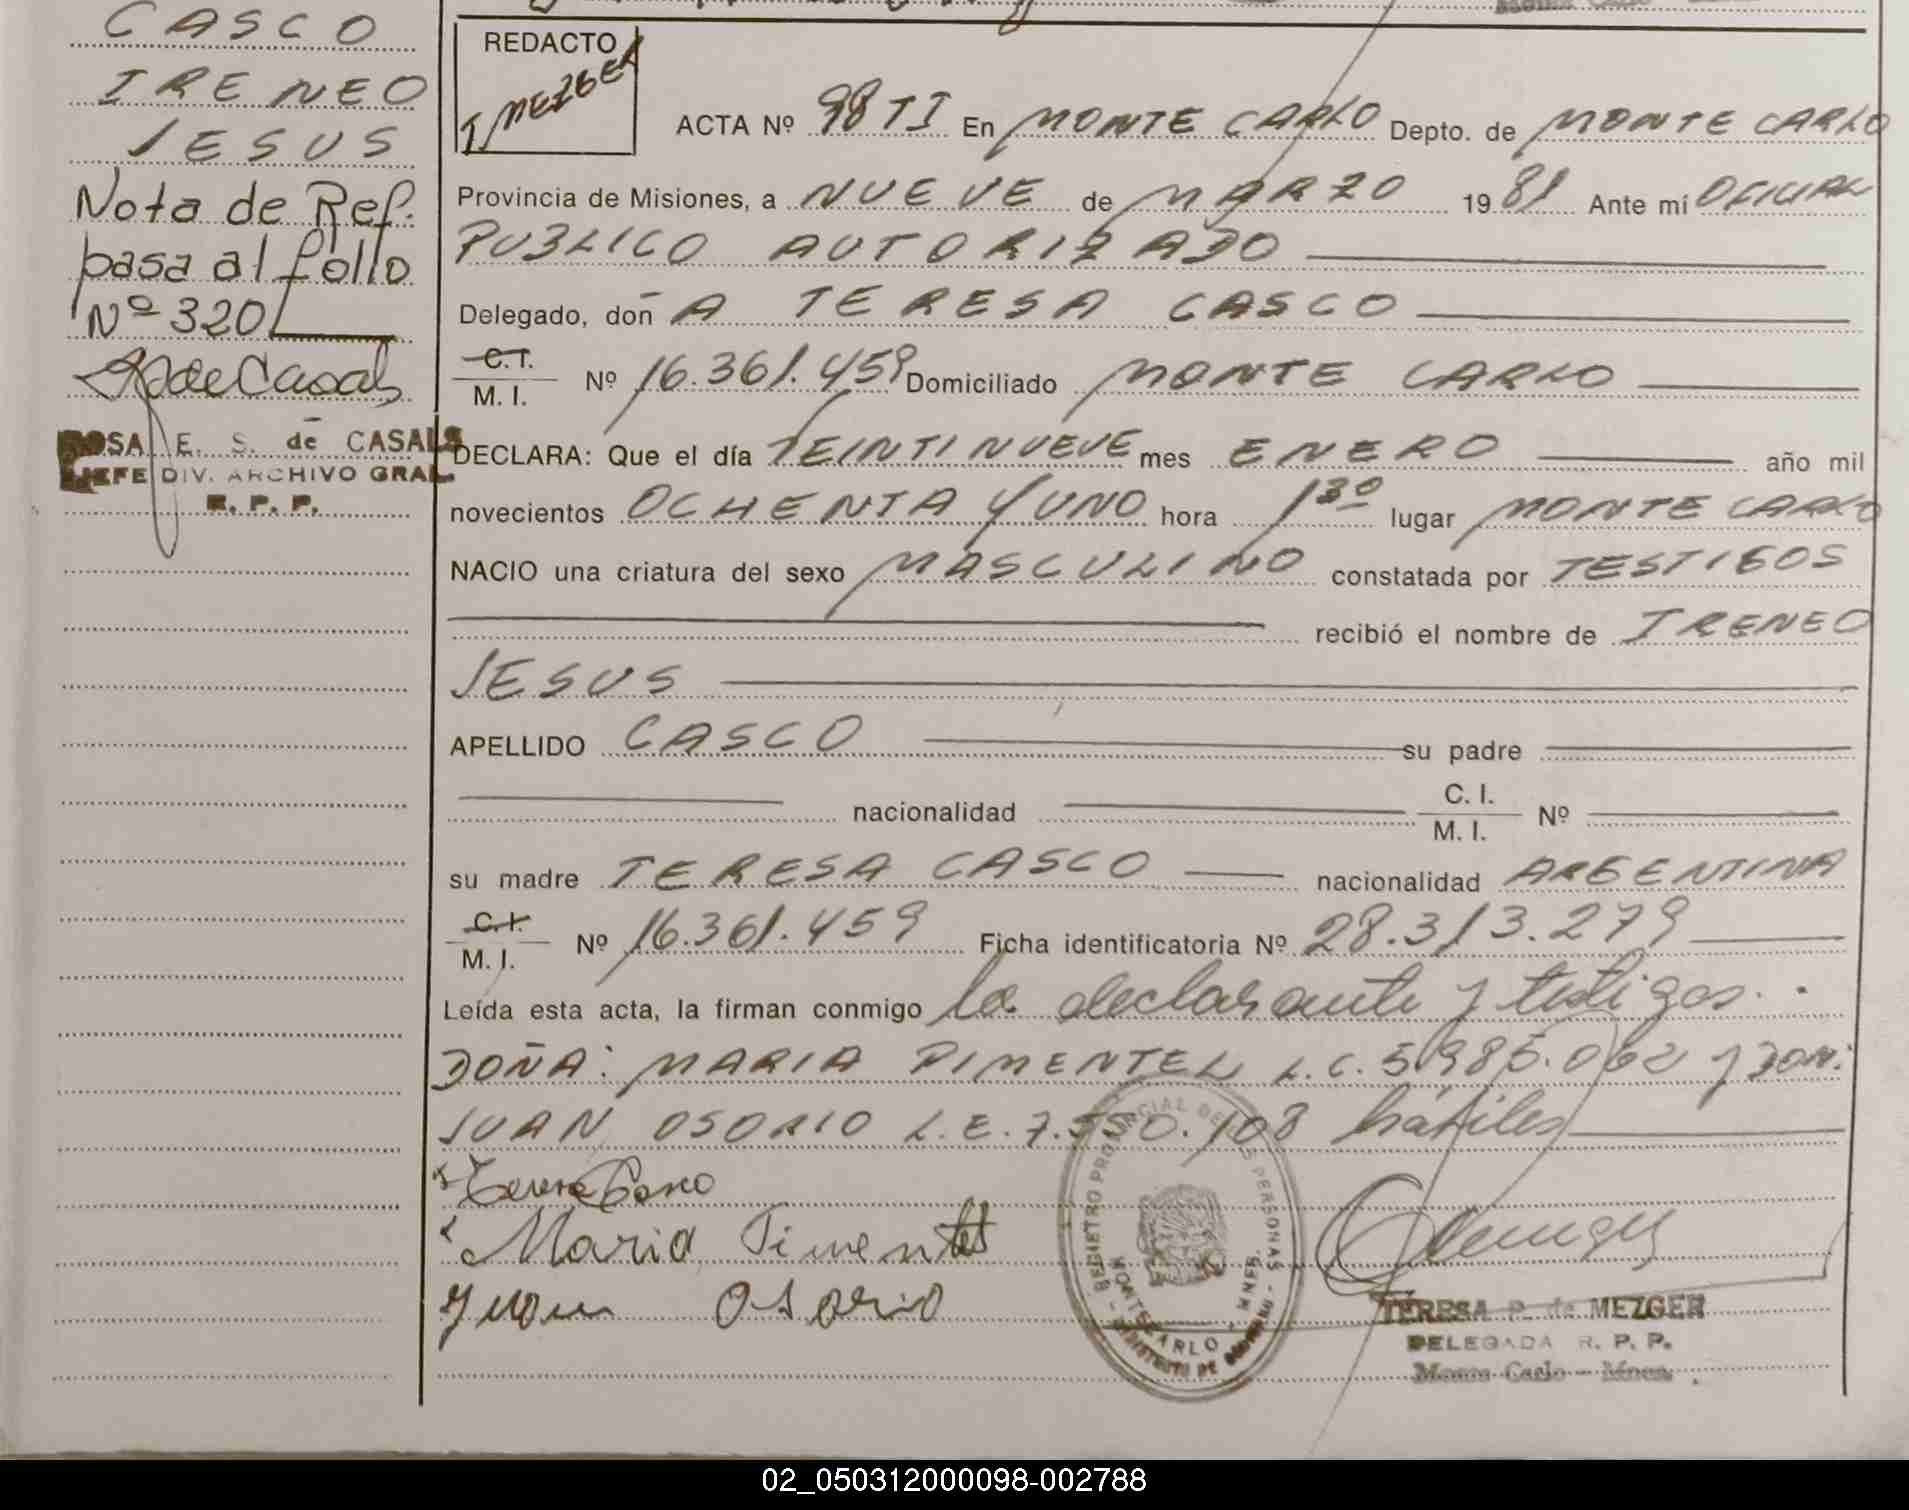 CASCO
IRENEO
JESUS
Nota de Ref.
pasa al folio
Nº 320
R de Casals
ROSA E. S. de CASALS
JEFE DIV. ARCHIVO GRAL
R. P. P.
REDACTO
T MEZGER
ACTA Nº 98 TI En MONTE CARLO Depto. de MONTE CARLO
Provincia de Misiones, a NUEVE de MARZO 1981 Ante mí OFICIAL
PUBLICO AUTORIZADO
Delegado, don A TERESA CASCO
C.I.
M. I. Nº 16.361.459 Domiciliado MONTE CARLO
DECLARA: Que el día VEINTINUEVE mes ENERO año mil
novecientos OCHENTA Y UNO hora 1 30 lugar MONTE CARLO
NACIO una criatura del sexo MASCULINO constatada por TESTIGOS
recibió el nombre de IRENEO
JESUS
APELLIDO CASCO su padre
nacionalidad C. I.
M. I. Nº
su madre TERESA CASCO nacionalidad ARGENTINA
C.I.
M. I. Nº 16.361.459 Ficha identificatoria Nº 28.313.279
Leída esta acta, la firman conmigo la declarante y testigos.
DOÑA: MARIA PIMENTEL L.C. 5.985.062 y DON:
JUAN OSORIO L.E. 7.550.108 hábiles
Teresa Casco
Maria Pimentel
Juan Osorio
MONTECARLO - MNES
TERESA P. de MEZGER
DELEGADA R. P. P.
Monte Carlo - Mnes.
02_050312000098-002788